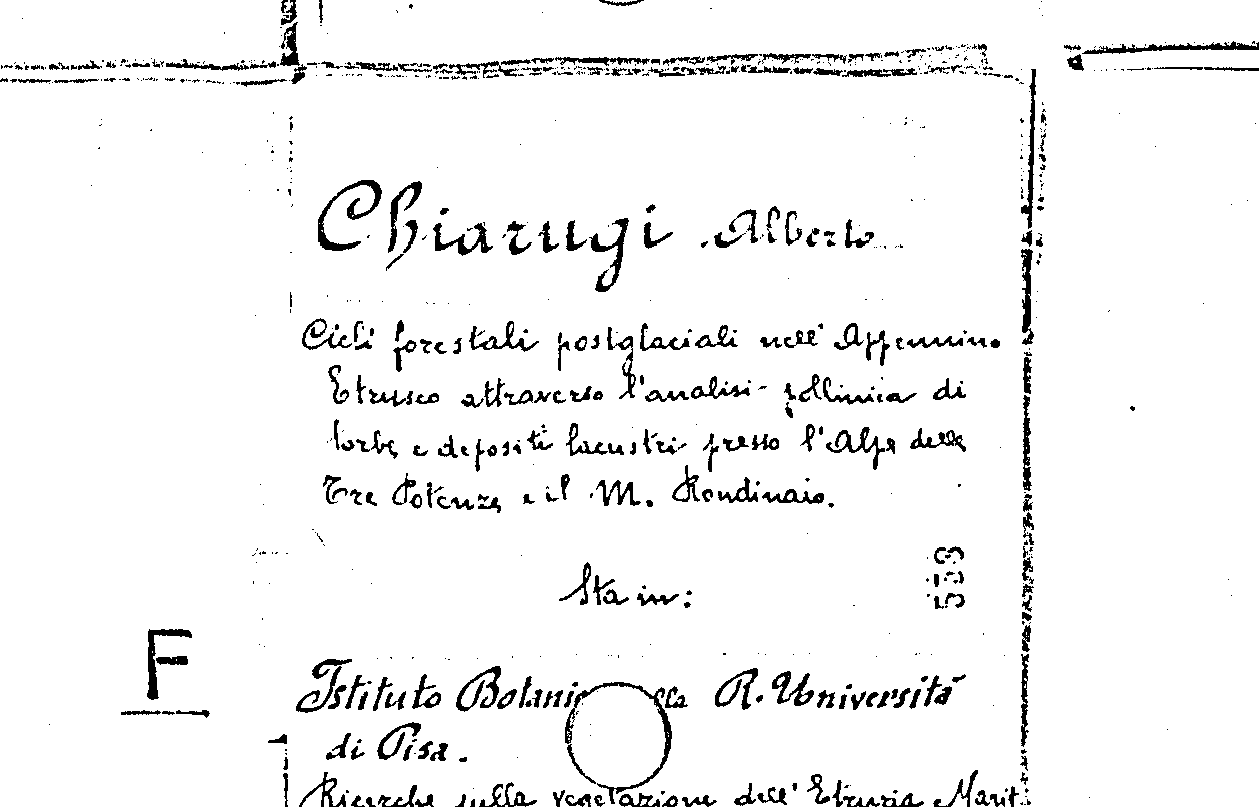 Chiarugi Alberto
Cicli forestali postglaciali nell' Appennino
Etrusco attraverso l'analisi pollinica di
torbe e depositi lacustri presso l'Alpe delle
Tre Potenze e il M. Rondinaio.
Sta in:
F
Istituto R. Università
di Pisa.
Ricerche sulla vegetazione dell' Etruria Maritt